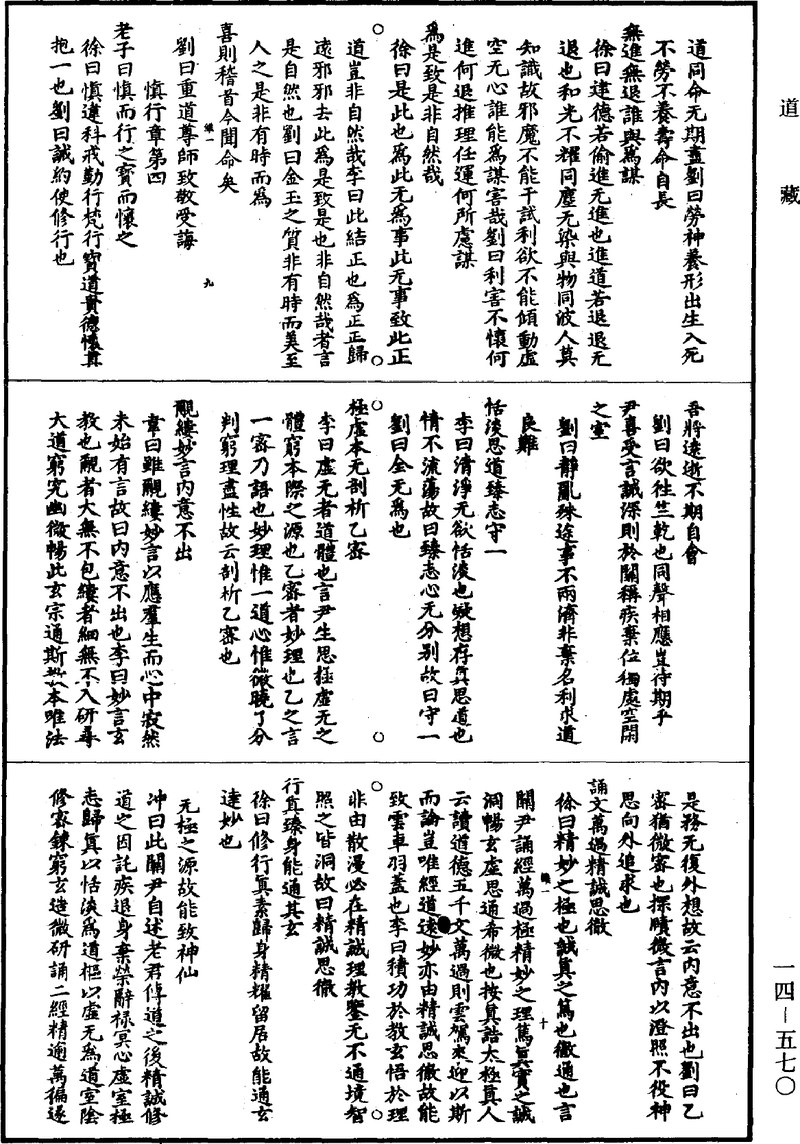 道藏
道同命无期盡劉曰勞神養形出生入死
不勞不養壽命自長
無進無退誰與為謀
徐曰建德若偷進无進也進道若退退无
退也和光不耀同塵无染與物同波人莫
知識故邪魔不能干試利欲不能傾動虛
空无心誰能為謀害哉劉曰利害不懷何
進何退推理任運何所慮謀
為是致是非自然哉
徐曰是此也為此无為事此无事致此正
道豈非自然哉李曰此結正也為正正歸
遠邪邪去此為是致是也非自然哉者言
是自然也劉曰金玉之質非有時而美至
人之是非有時而為
喜則稽首今聞命矣
劉曰重道尊師致敬受誨
九
慎行章第四
老子曰慎而行之寳而懷之
徐曰慎違科戒勤行梵行寳道貴德懷真
抱一也劉曰誡約使修行也
吾將遠逝不期自會
劉曰欲徃竺乾也同聲相應豈待期乎
尹喜受言誠深則於關稱疾棄位獨處空閑
之室
劉曰靜亂殊途事不兩濟非棄名利求道
良難
恬淡思道臻志守一
李曰清淨无欲恬淡也凝想存真思道也
情不流蕩故曰臻志心无分别故曰守一
劉曰全无為也
極虛本无剖析乙密
李曰虛无者道體也言尹生思極虛无之
體窮本際之源也乙密者妙理也乙之言
一密乃語也妙理惟一道心惟微曉了分
判窮理盡性故云剖析乙密也
覼縷妙言内意不出
韋曰雖覼縷妙言以應羣生而心中寂然
未始有言故曰内意不出也李曰妙言玄
教也覼者大無不包縷者細無不入研尋
大道窮究幽微暢此玄宗通斯妙本唯法
是務无復外想故云内意不出也劉曰乙
密猶微密也探賾微言内以澄照不役神
思向外追求也
誦文萬過精誠思徹
徐曰精妙之極也誠真之篤也徹通也言
關尹誦經萬過極精妙之理篤真實之誠
十
洞暢玄虛思通希微也按真誥太極真人
云讀道德五千文萬過則雲駕來迎以斯
而論豈唯經道遠妙亦由精誠思徹故能
致雲車羽蓋也李曰積功於教玄悟於理
非由散漫必在精誠理教鑒无不通境智
照之皆洞故曰精誠思徹
行真臻身能通其玄
徐曰修行真素歸身精耀留居故能通玄
達妙也
无極之源故能致神仙
沖曰此關尹自述老君傳道之後精誠修
道之因託疾退身棄榮辭禄冥心虛室極
志歸真以恬淡為道樞以虛无為道室陰
修密鍊窮玄造微研誦二經精逾萬徧遂
一四－五七〇